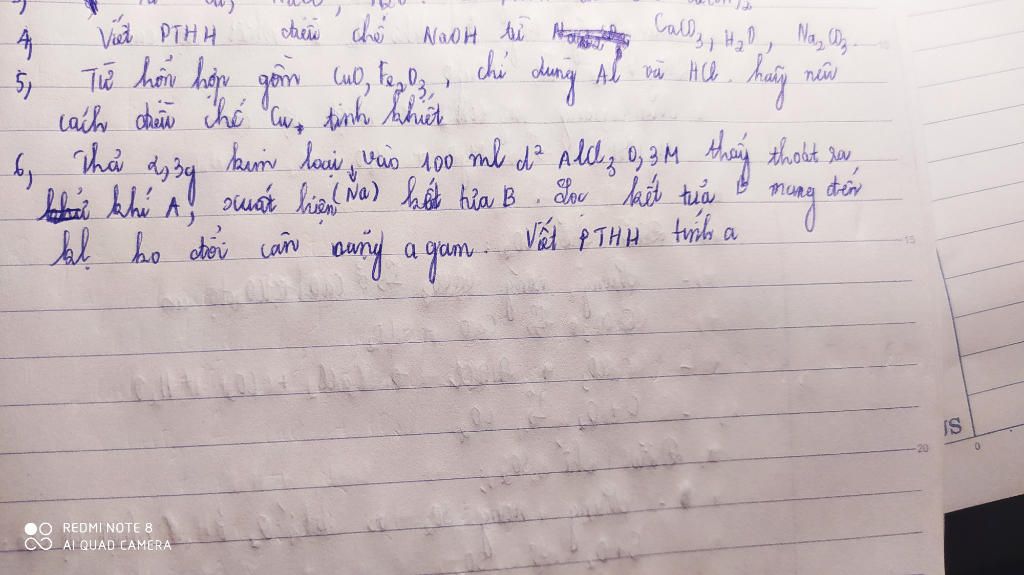 4, Viết PTHH điều chế NaOH từ CaCO3, H2O, Na2CO3.
5, Từ hỗn hợp gồm CuO, Fe2O3, chỉ dùng Al và HCl. hãy nêu
cách điều chế Cu. tinh khiết
6, Thả 2,3g kim loại vào 100 ml d² AlCl3 0,3M thấy thoát ra
khí A, xuất hiện (Na) kết tủa B. Lọc kết tủa B mang đến
kl ko đổi cân nặng a gam. Viết PTHH tính a
15
20
IS
0
REDMI NOTE 8
AI QUAD CAMERA